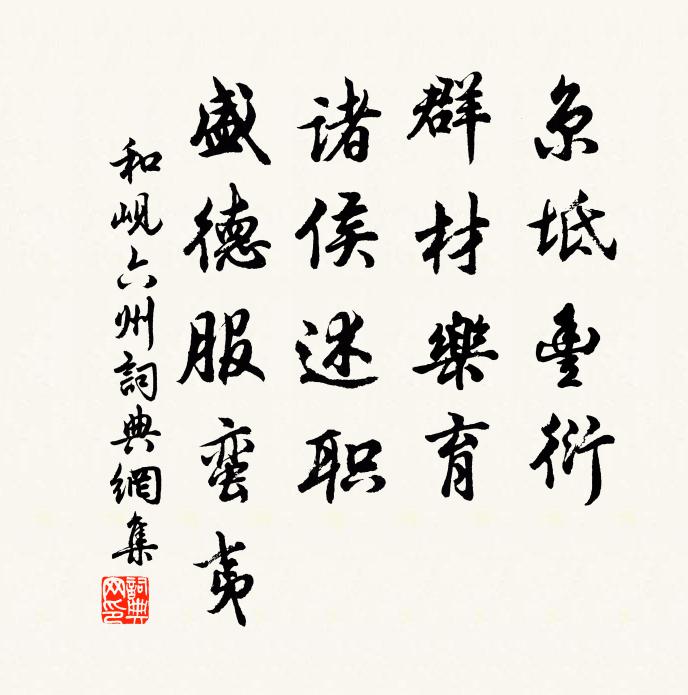 京坻豐衍
群材樂育
诸侯述职
盛德服蛮夷
和岘六州詞典網集
詞典网印